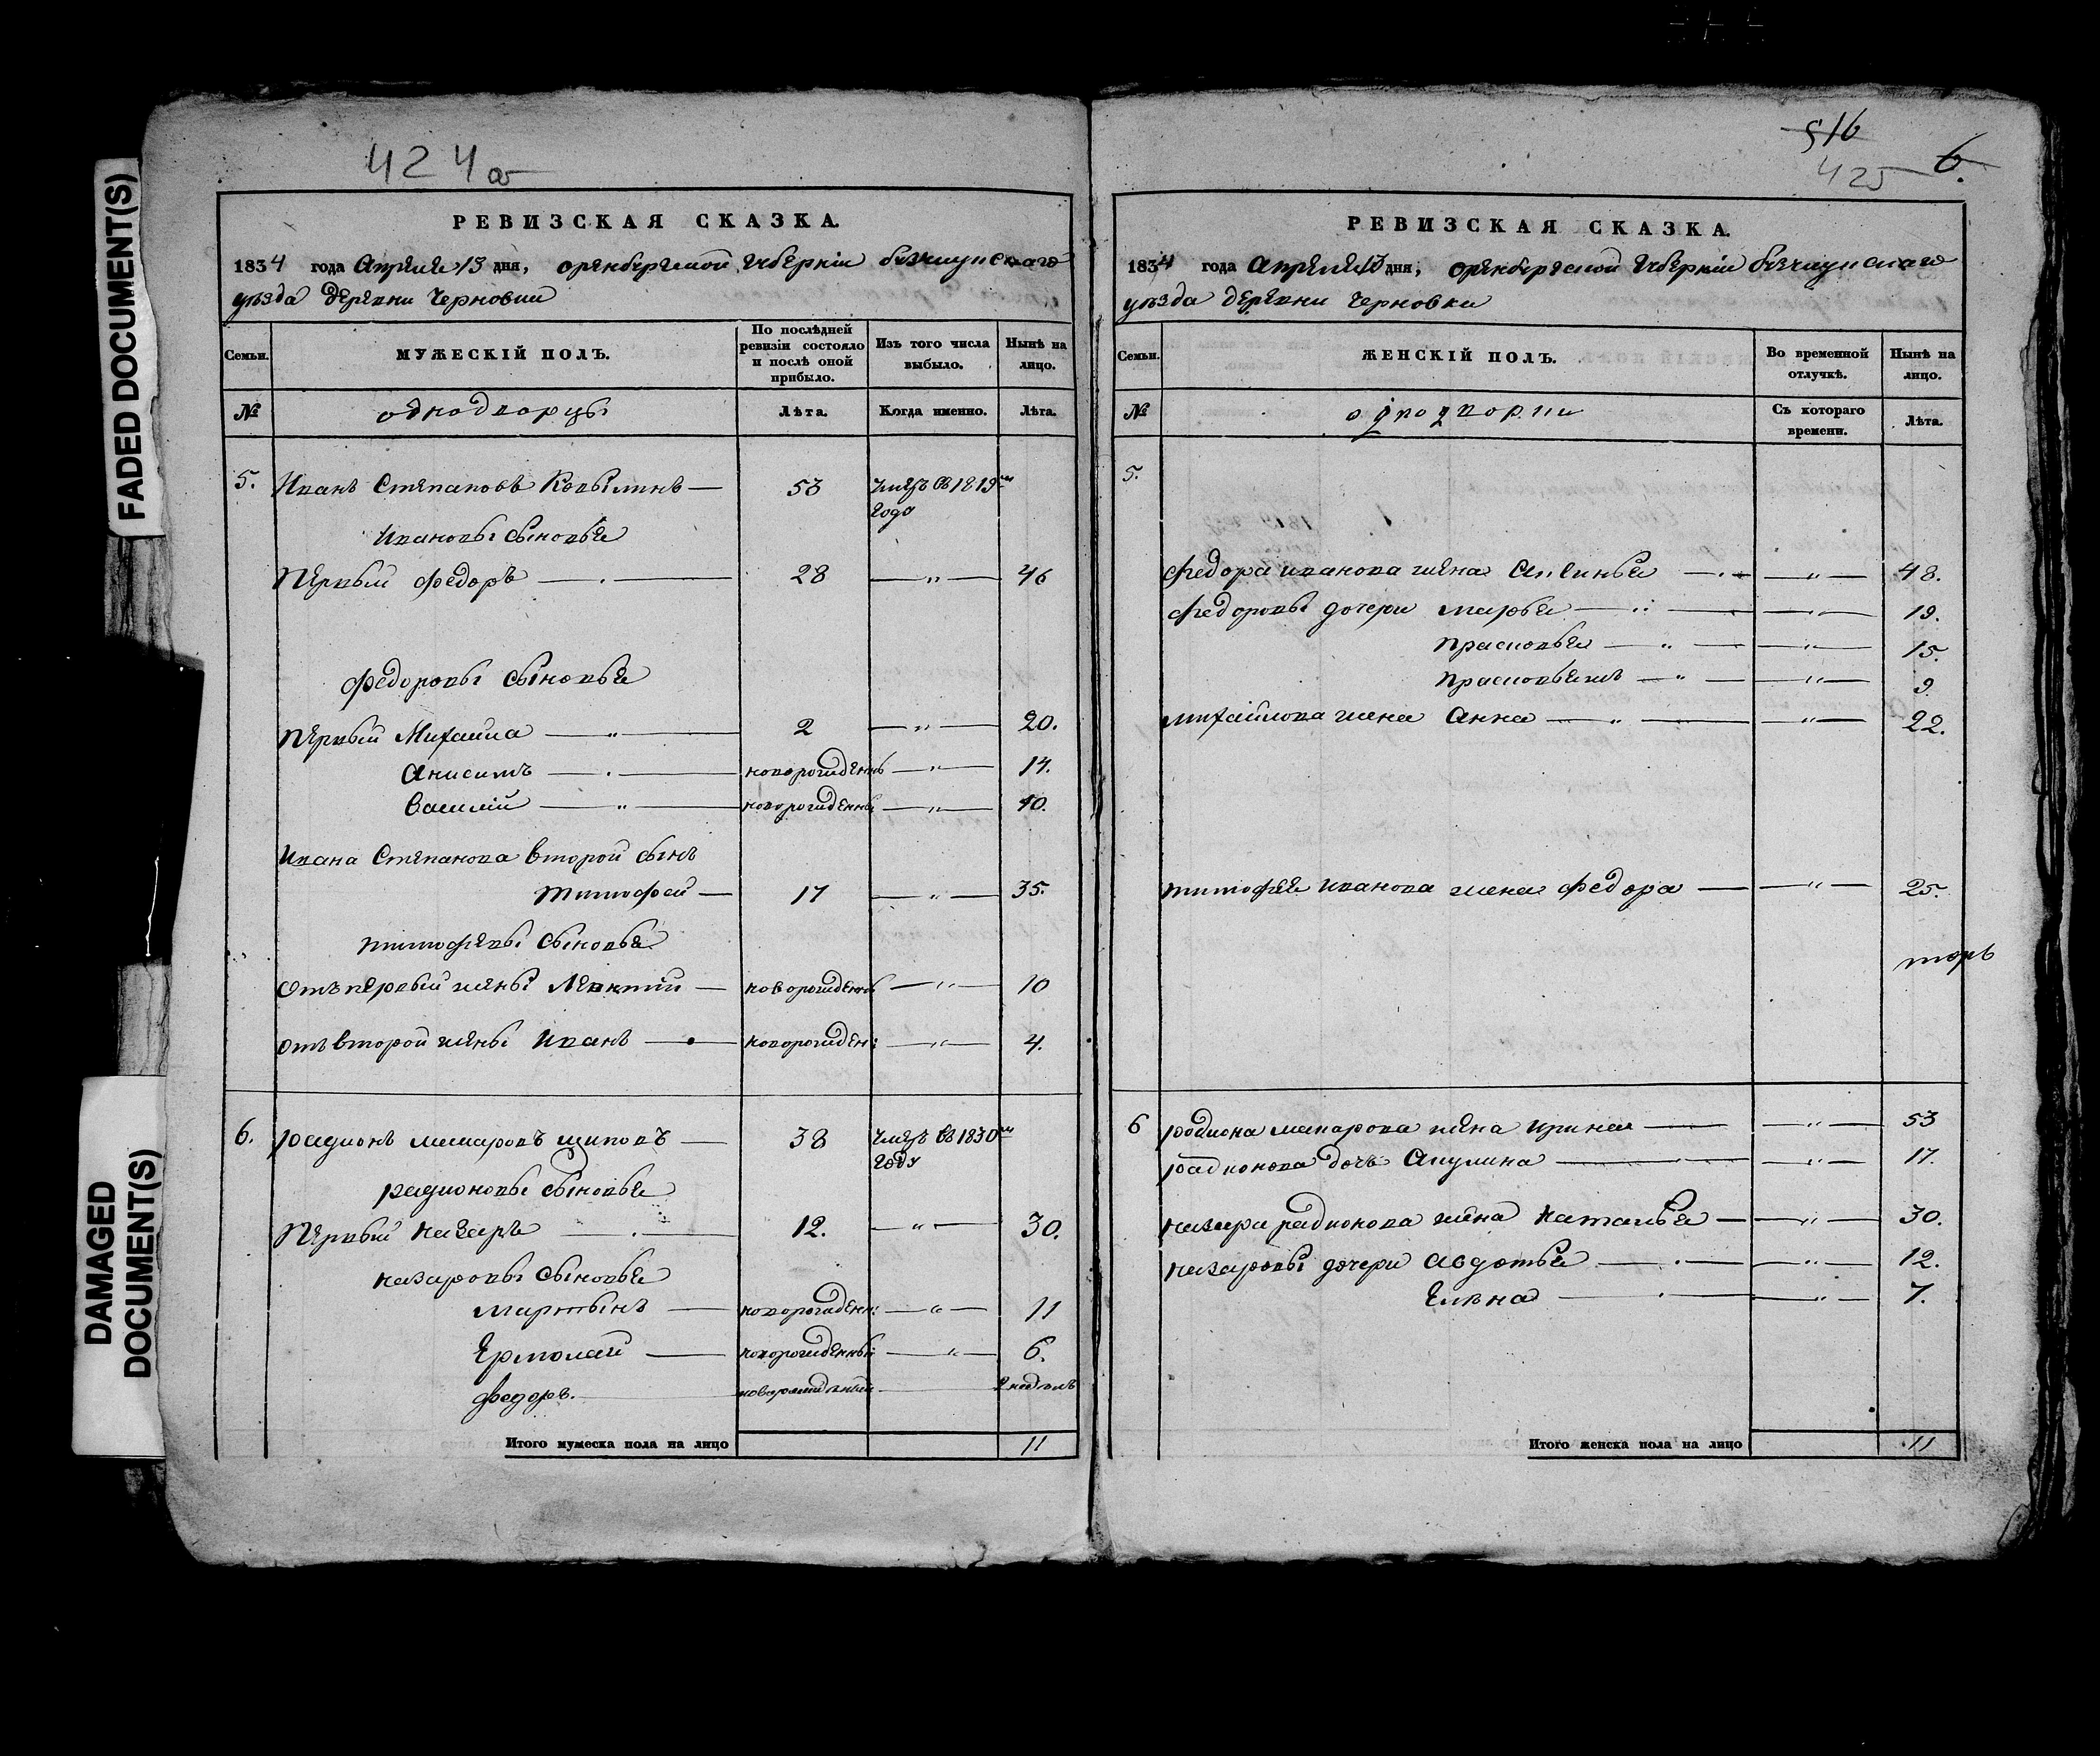 FADED DOCUMENT(S)
DAMAGED
DOCUMENT(S)
424а
РЕВИЗСКАЯ СКАЗКА.
1834 года Апреля 13 дня, оренбергской губернiи бузулукскаго
уезда деревни Черновки
Семьи. МУЖЕСКIЙ ПОЛЪ. По послѣдней ревизiи состояло и послѣ оной прибыло. Изъ того числа выбыло. Нынѣ на лицо.
№ однодворцы Лѣта. Когда именно. Лѣта.
5. Иванъ Степановъ Кобылинъ — 53 умеръ въ 1819м
года
Ивановы сыновья
первый Федоръ — 28 — „ — 46
Федоровы сыновья
первый Михайла — „ — 2 — „ — 20.
Анисимъ — новорожденны — „ — 14.
Василiй — „ — новорожденны — „ — 10.
Ивана Степанова второй сынъ
Тимофей — 17 — „ — 35.
Тимофеевы сыновья
отъ первый жены Леонтiй — новорожденны — „ — 10
отъ второй жены Иванъ — новорожден: — „ — 4.
6. радионъ макаровъ щиповъ — 38 умеръ въ 1830м
году
радионовы сыновья
первый назаръ — 12. — „ — 30.
назаровы сыновья
мартынъ — новорожденн: — „ — 11
Ермолай — новорожденный — „ — 6.
федоръ. новорожденный 2 недель
Итого мужеска пола на лицо 11
516
425 6.
РЕВИЗСКАЯ СКАЗКА.
1834 года Апреля 13 дня, оренбергской губернiи бузулукскаго
уезда деревни Черновки
Семьи. ЖЕНСКIЙ ПОЛЪ. Во временной отлучкѣ. Нынѣ на лицо.
№ однодворки Съ котораго времени. Лѣта.
5.
Федора иванова жена Аксинья — „ — 48.
Федоровы дочери марья — „ — 19.
Прасковья — „ — 15.
Прасковья — „ — 9
михайлова жена Анна — „ — 22.
тимофея иванова жена федора — „ — 25.
6 родиона макарова жена ирина — „ — 53
радионова дочь Акулина — „ — 17.
назара радионова жена наталья — „ — 30.
назаровы дочери авдотья — „ — 12.
Елена — „ — 7.
Итого женска пола на лицо 11